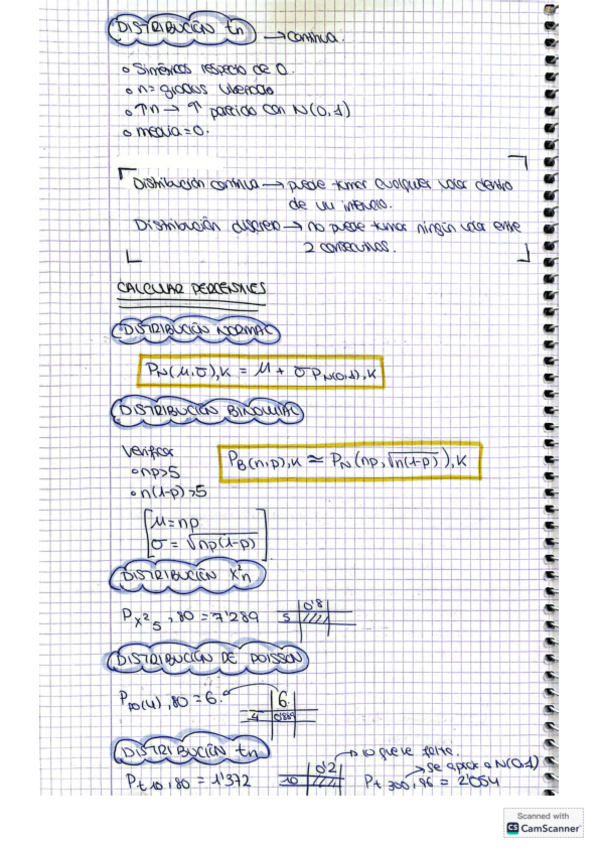 DISTRIBUCIÓN tn → continua.
o Simétricas respecto de 0.
o n = grados libertad
o ↑n → ↑ parecido con N(0,1)
o media = 0.
Distribución continua → puede tomar cualquier valor dentro
de un intervalo.
Distribución discreta → no puede tomar ningún valor entre
2 consecutivos.
CALCULAR PERCENTILES
DISTRIBUCIÓN NORMAL
PN(μ,σ),K = μ + σPN(0,1),K
DISTRIBUCIÓN BINOMIAL
Verificar
o np>5
o n(1-p)>5
PB(n,p),K ≃ PN(np,√n(1-p)),K
μ = np
σ = √np(1-p)
DISTRIBUCIÓN X²n
PX²5,80 = 7'289
0'8
5
DISTRIBUCIÓN DE POISSON
Ppo(4),80 = 6.
6
4 0'889
DISTRIBUCIÓN tn
Pt10,80 = 1'372
0'2 → lo que falta.
10
→ se aprox a N(0,1)
Pt300,96 = 2'054
Scanned with
CS CamScanner